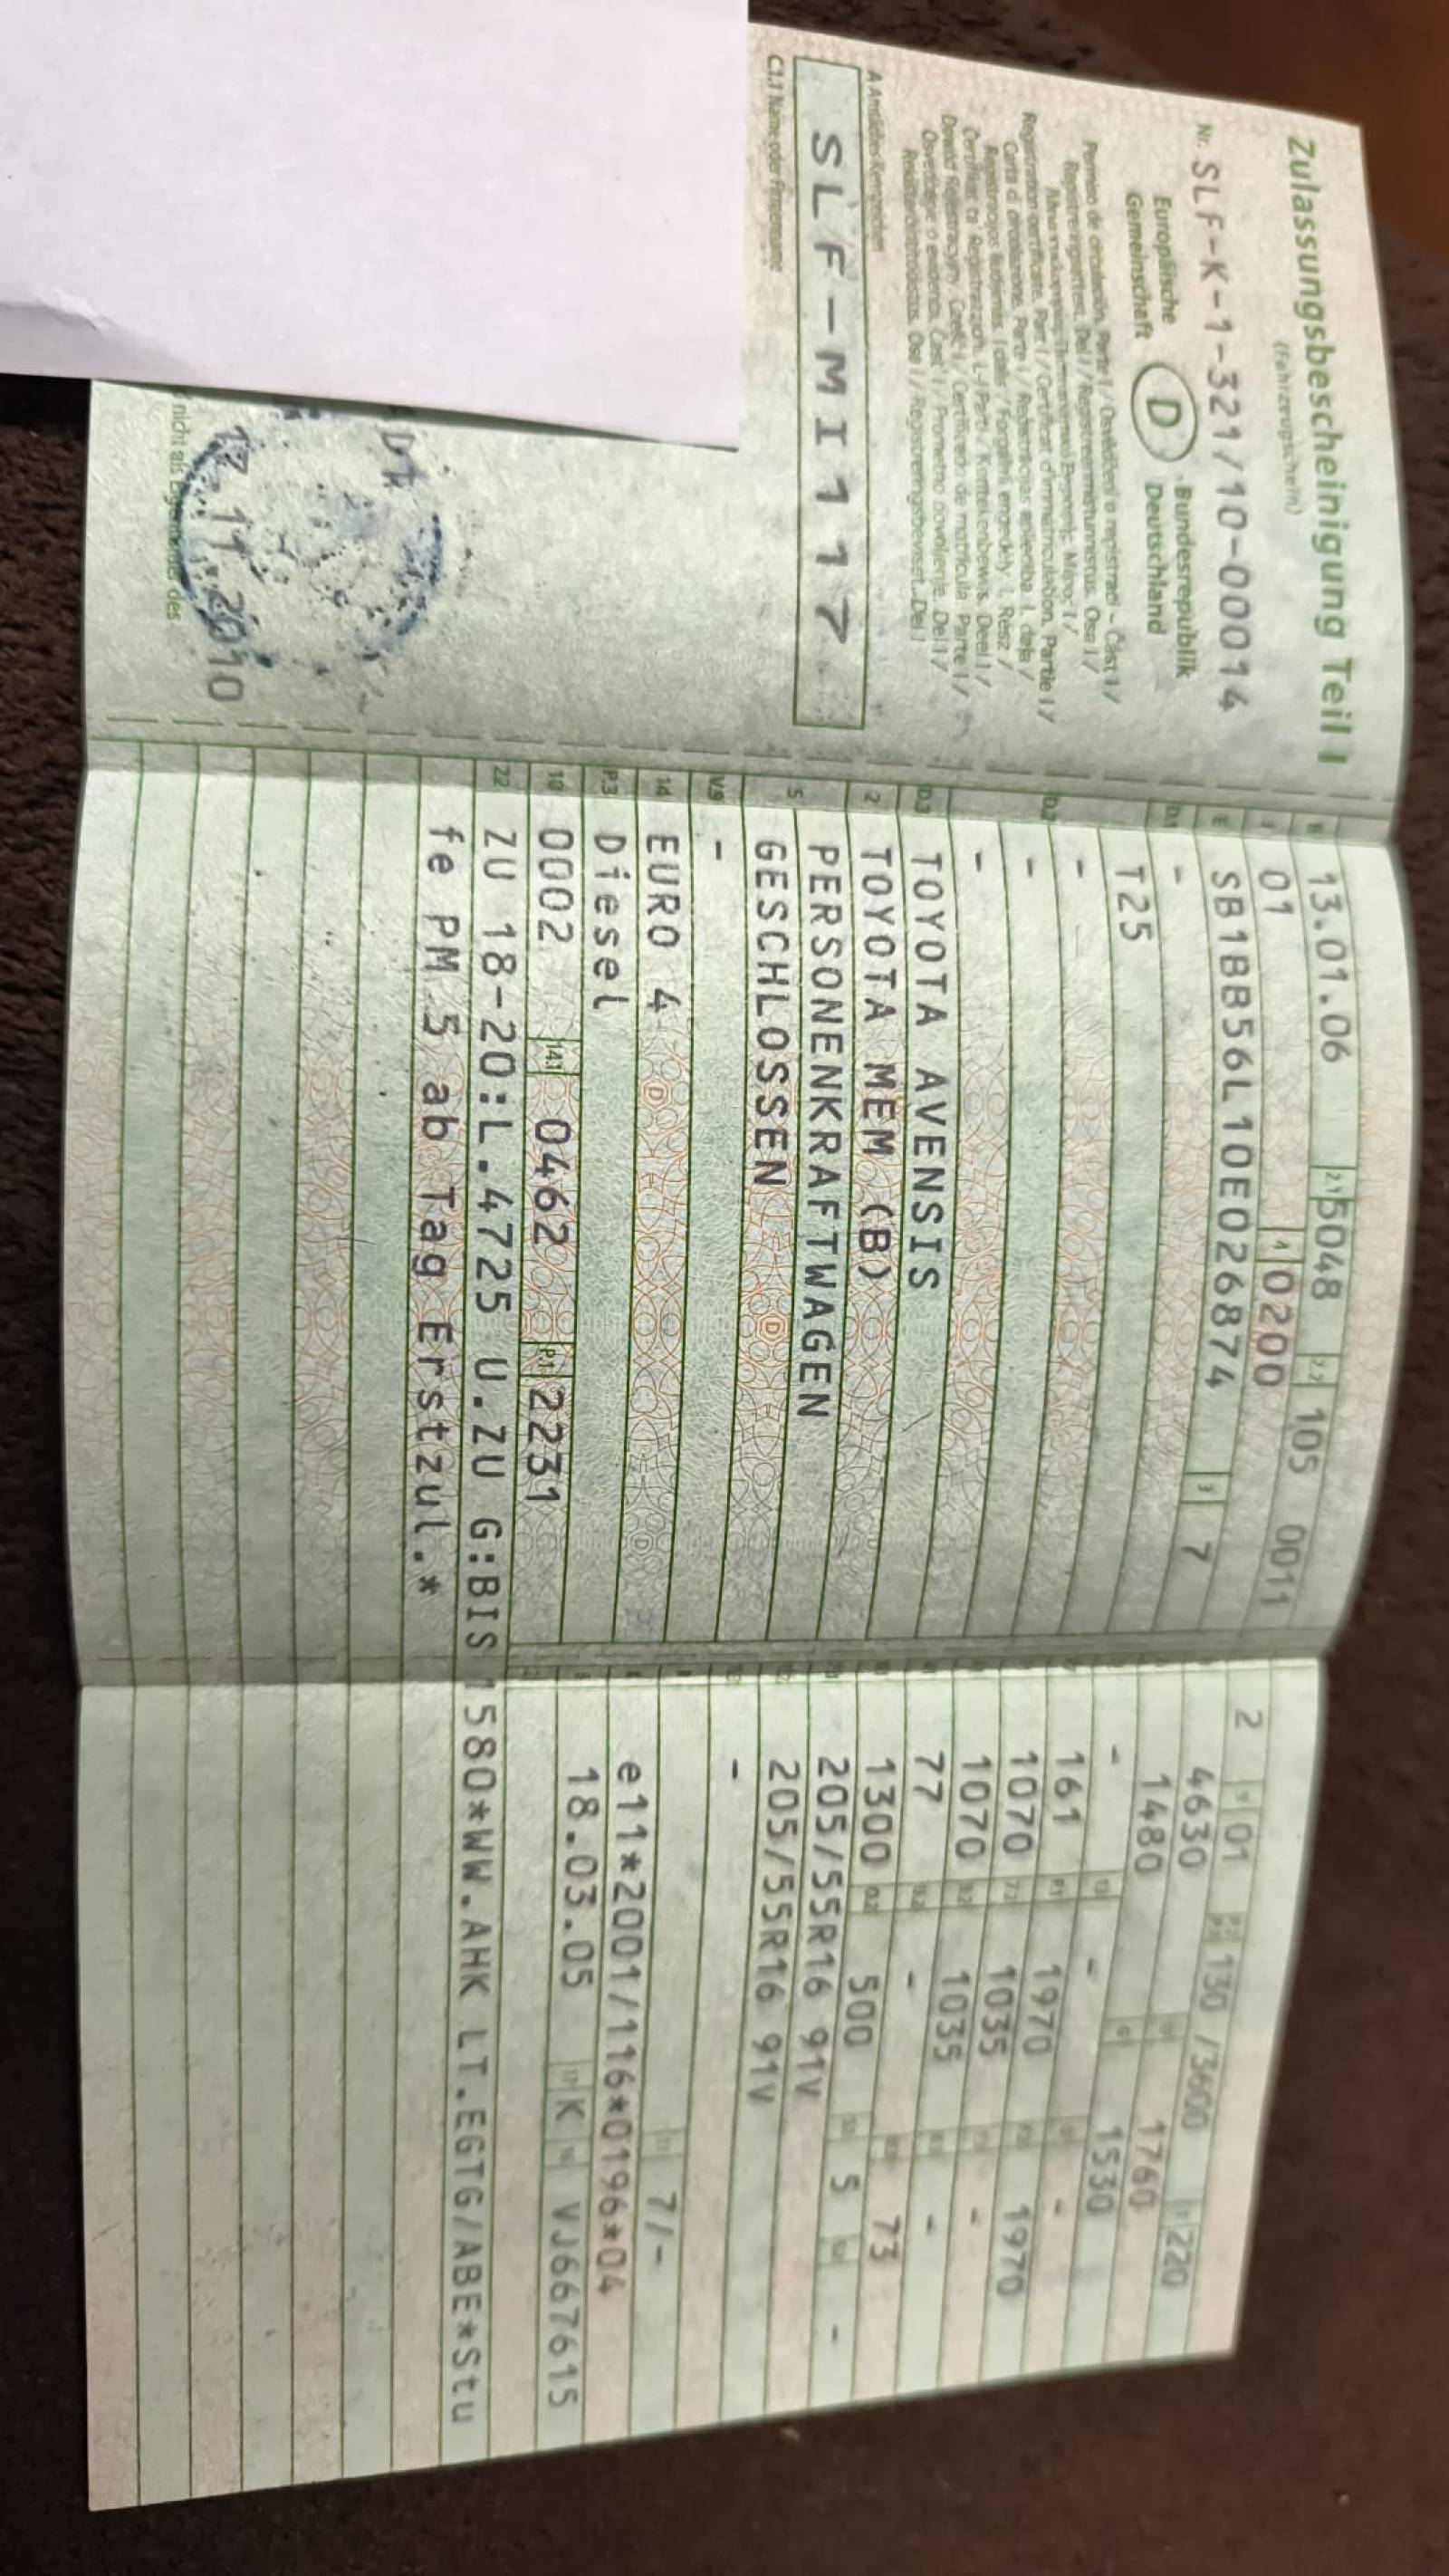 Zulassungsbescheinigung Teil I
(Fahrzeugschein)
Nr. SLF-K-1-321/10-00014
Europäische Gemeinschaft
D
Bundesrepublik Deutschland
Permiso de circulación. Parte I / Osvědčení o registraci - Část I /
Registreringsattest. Del I / Registreerimistunnistus. Osa I /
Registration certificate. Part I / Certificat d'immatriculation. Partie I /
Carta di circolazione. Parte I / Reģistrācijas apliecība. I. daļa /
A Amtliches Kennzeichen
SLF-MI117
C1.1 Name oder Firmenname
17.11.2010
B 13.01.06 2.1 5048 2.2 105 0011
J 01 4 0200
E SB1BB56L10E026874 3 7
D.1 -
T25
-
D.2 -
-
D.3 TOYOTA AVENSIS
2 TOYOTA MEM (B)
5 PERSONENKRAFTWAGEN
GESCHLOSSEN
V.9 -
14 EURO 4
P.3 Diesel
10 0002 14.1 0462 P.1 2231
22 ZU 18-20:L.4725 U.ZU G:BIS 1580*WW.AHK LT.EGTG/ABE*Stu
fe PM 5 ab Tag Erstzul.*
2 9 01 130 /3600 220
4630 1760
1480 1530
- -
161 1970 1970
1070 1035 -
1070 1035 -
77 - -
1300 500 73
205/55R16 91V 5 -
205/55R16 91V
-
7/-
e11*2001/116*0196*04
18.03.05 17 K 16 VJ667615